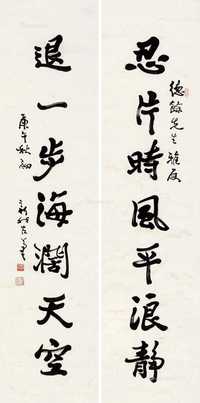 忍片時風平浪靜
德餘先生雅屬
退一步海濶天空
庚午秋初